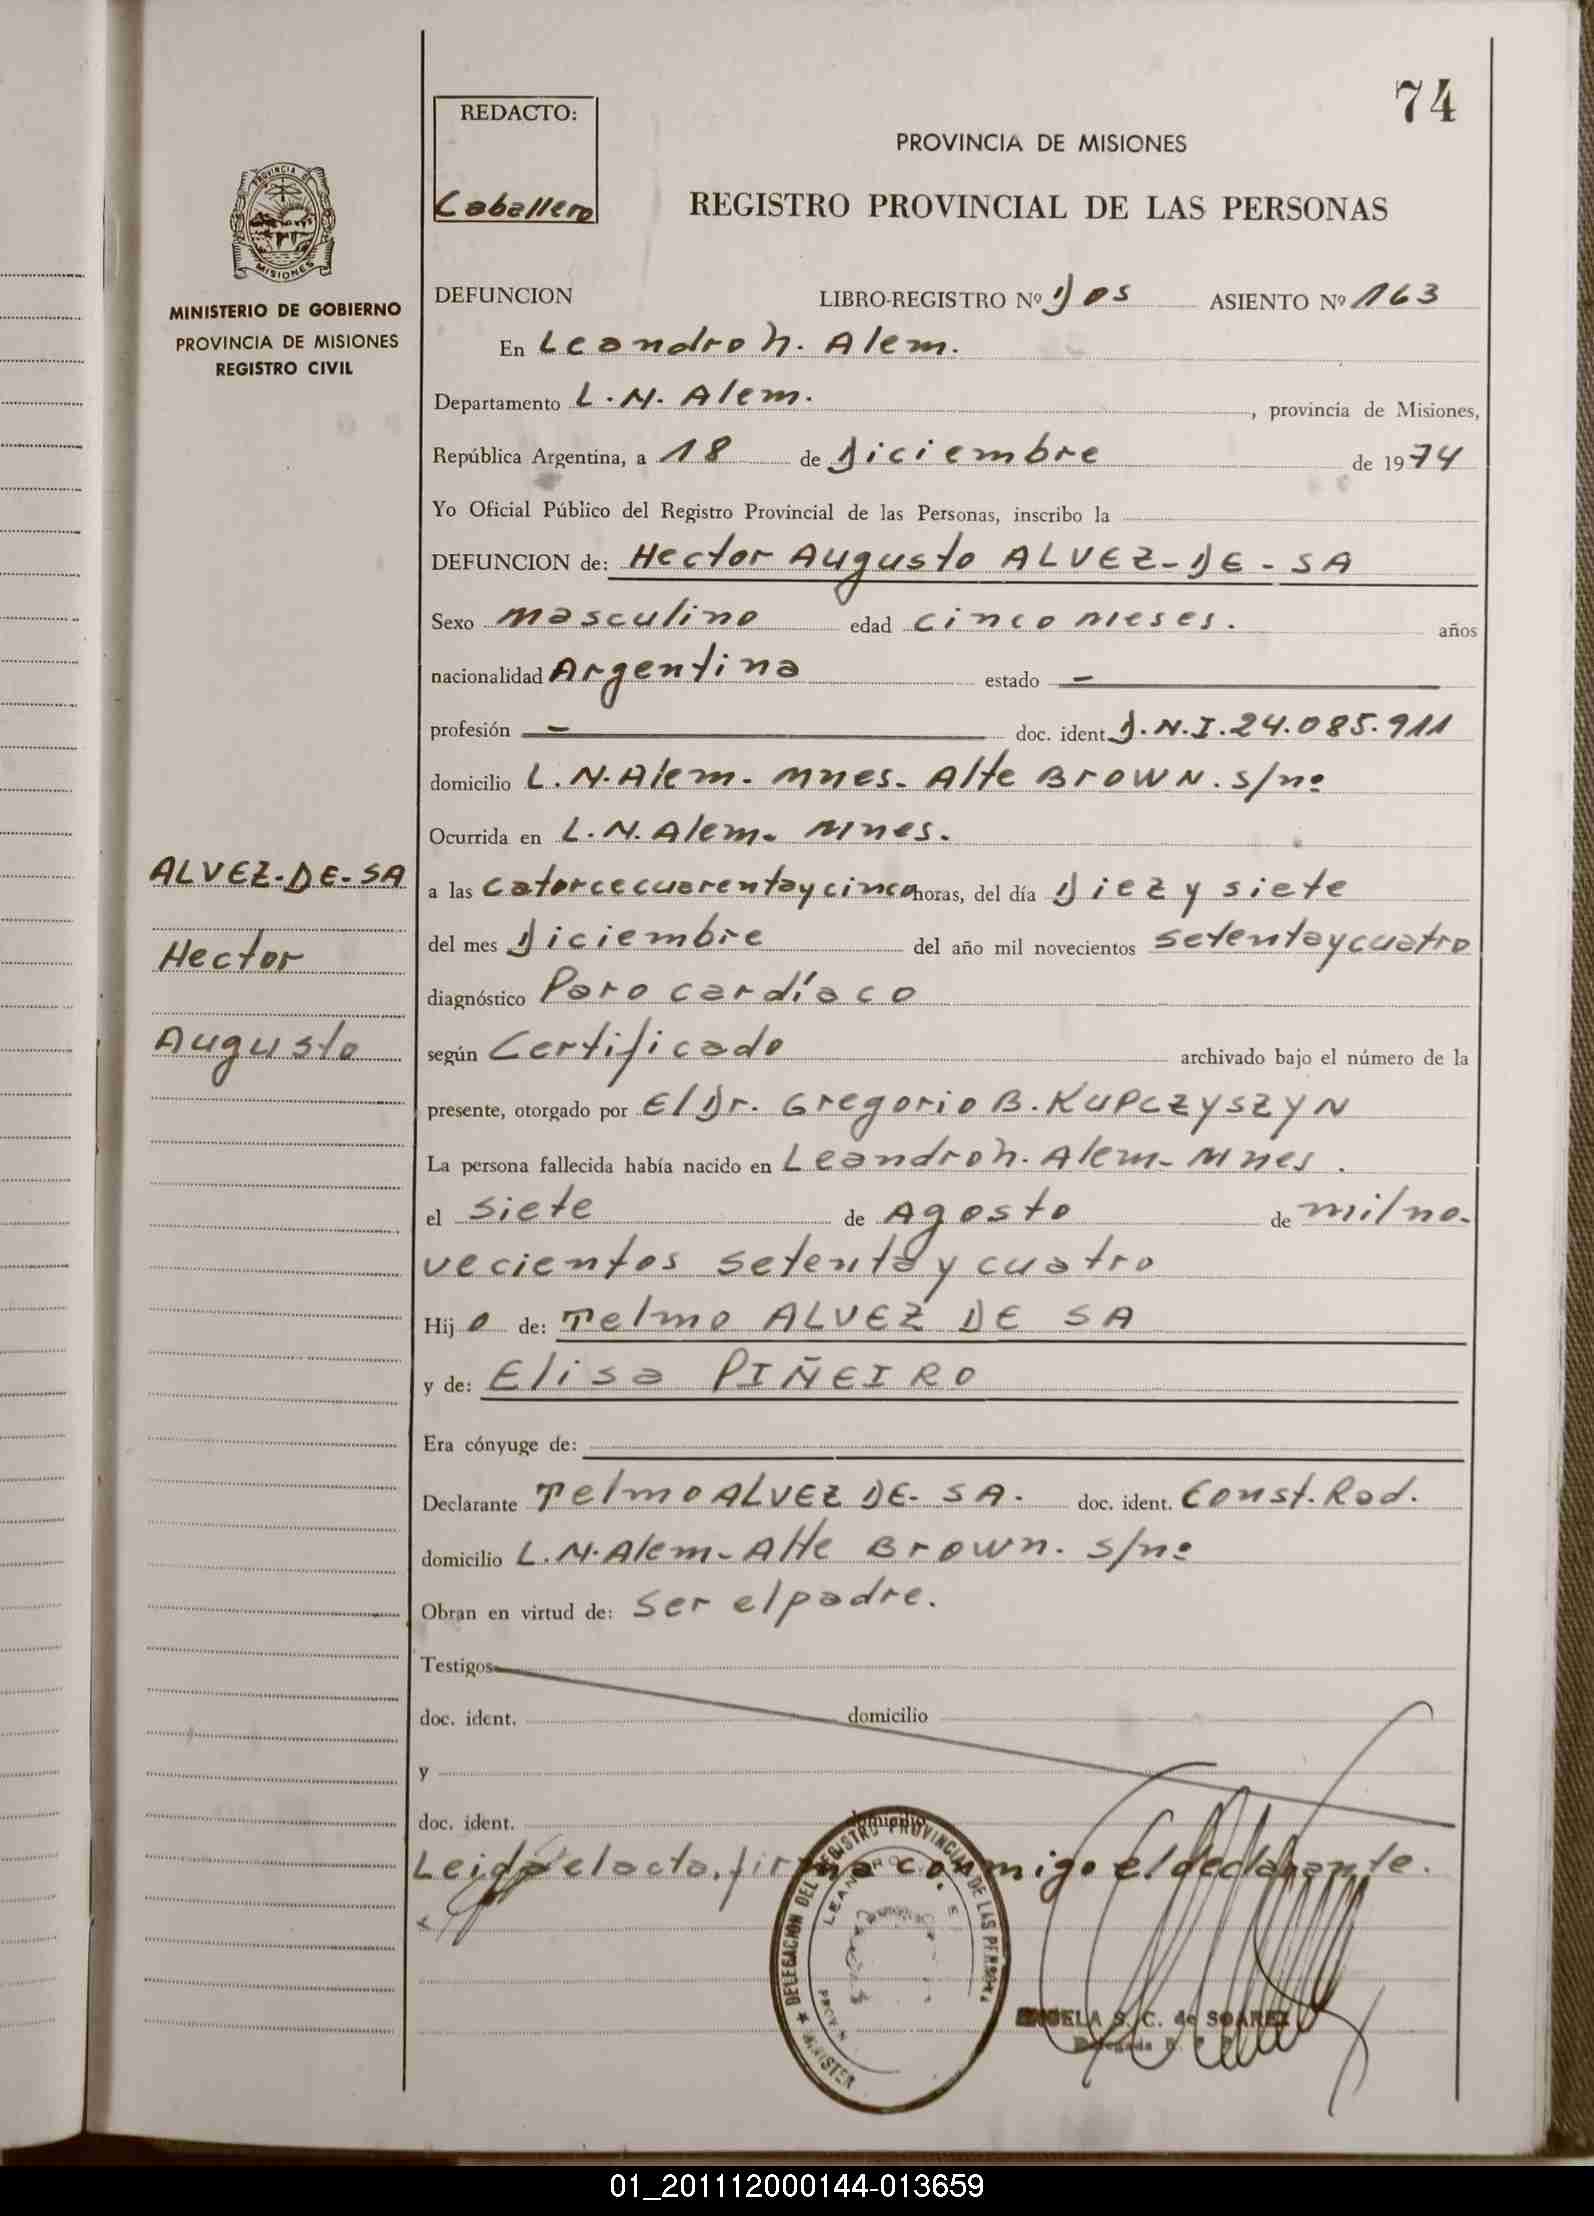 74
REDACTO:
Caballero
PROVINCIA DE MISIONES
REGISTRO PROVINCIAL DE LAS PERSONAS
PROVINCIA DE
MISIONES
MINISTERIO DE GOBIERNO
PROVINCIA DE MISIONES
REGISTRO CIVIL
DEFUNCION LIBRO-REGISTRO Nº Dos ASIENTO Nº 163
En Leandro N. Alem.
Departamento L.N. Alem. , provincia de Misiones,
República Argentina, a 18 de Diciembre de 1974
Yo Oficial Público del Registro Provincial de las Personas, inscribo la
DEFUNCION de: Hector Augusto ALVEZ-DE-SA
Sexo masculino edad cinco meses. años
nacionalidad Argentina estado —
profesión — doc. ident. D.N.I. 24.085.911
domicilio L.N.Alem- Mnes. Alte BROWN. s/nº
Ocurrida en L.N.Alem- Mnes.
ALVEZ-DE-SA
Hector
Augusto
a las catorce cuarenta y cinco horas, del día Diez y siete
del mes Diciembre del año mil novecientos setenta y cuatro
diagnóstico Paro cardíaco
según Certificado archivado bajo el número de la
presente, otorgado por El Dr. Gregorio B. KUPCZYSZYN
La persona fallecida había nacido en Leandro N. Alem- Mnes.
el siete de Agosto de mil no-
vecientos setenta y cuatro
Hij o de: Telmo ALVEZ DE SA
y de: Elisa PIÑEIRO
Era cónyuge de:
Declarante Telmo ALVEZ DE- SA. doc. ident. Const. Rad.
domicilio L.N.Alem- Alte Brown. s/nº
Obran en virtud de: ser el padre.
Testigos
doc. ident. domicilio
y
doc. ident. domicilio
Leida el acta, firma conmigo el declarante.
DELEGACION DEL REGISTRO PROVINCIAL DE LAS PERSONAS
ANGELA S. C. de SOAREZ
01_201112000144-013659